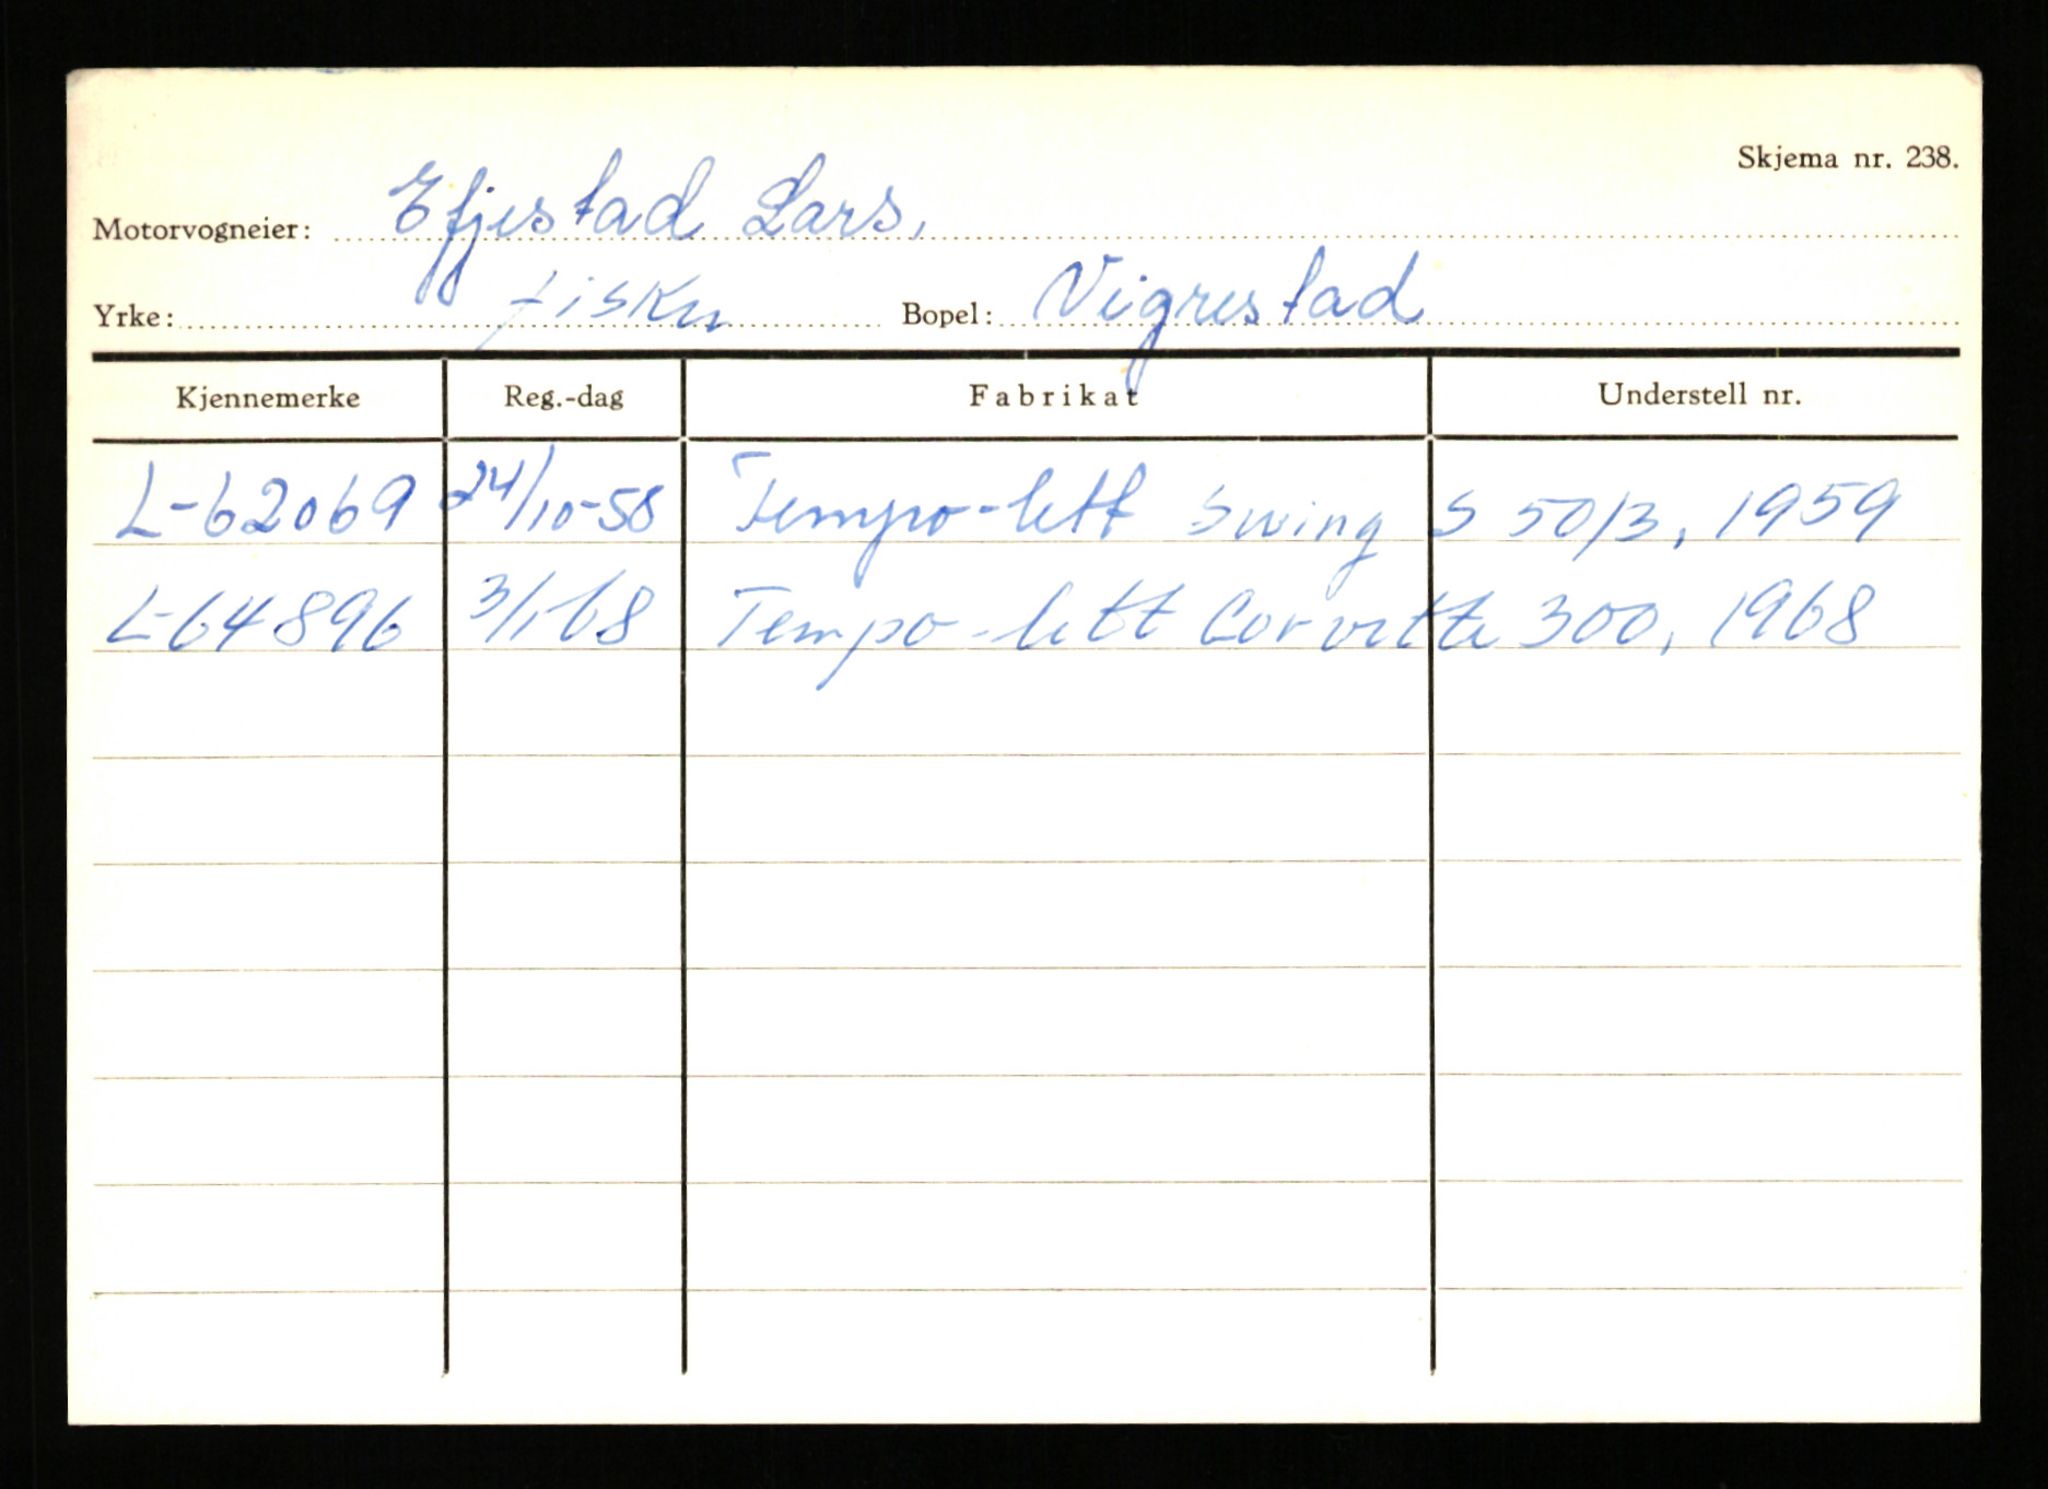 Skjema nr. 238.
Motorvogneier: Efjestad Lars,
Yrke: fisker Bopel: Vigrestad
Kjennemerke Reg.-dag Fabrikat Understell nr.
L-62069 24/10-58 Tempo-lett Swing S 50/3, 1959
L-64896 3/1-68 Tempo-lett Corvette 300, 1968